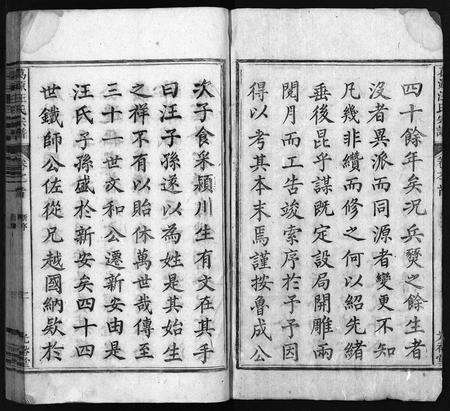 四十餘年矣況兵燹之餘生者
沒者異派而同源者變更不知
凡幾非纘而修之何以紹先緒
垂後昆乎謀既定設局開雕兩
閱月而工告竣索序於予予因
得以考其本末焉謹按魯成公
次子食采潁川生有文在其手
曰汪子孫遂以為姓是其始生
之祥不有以貽休萬世哉傳至
三十一世文和公遷新安由是
汪氏子孫盛於新安矣四十四
世鐵師公佐從兄越國納款於